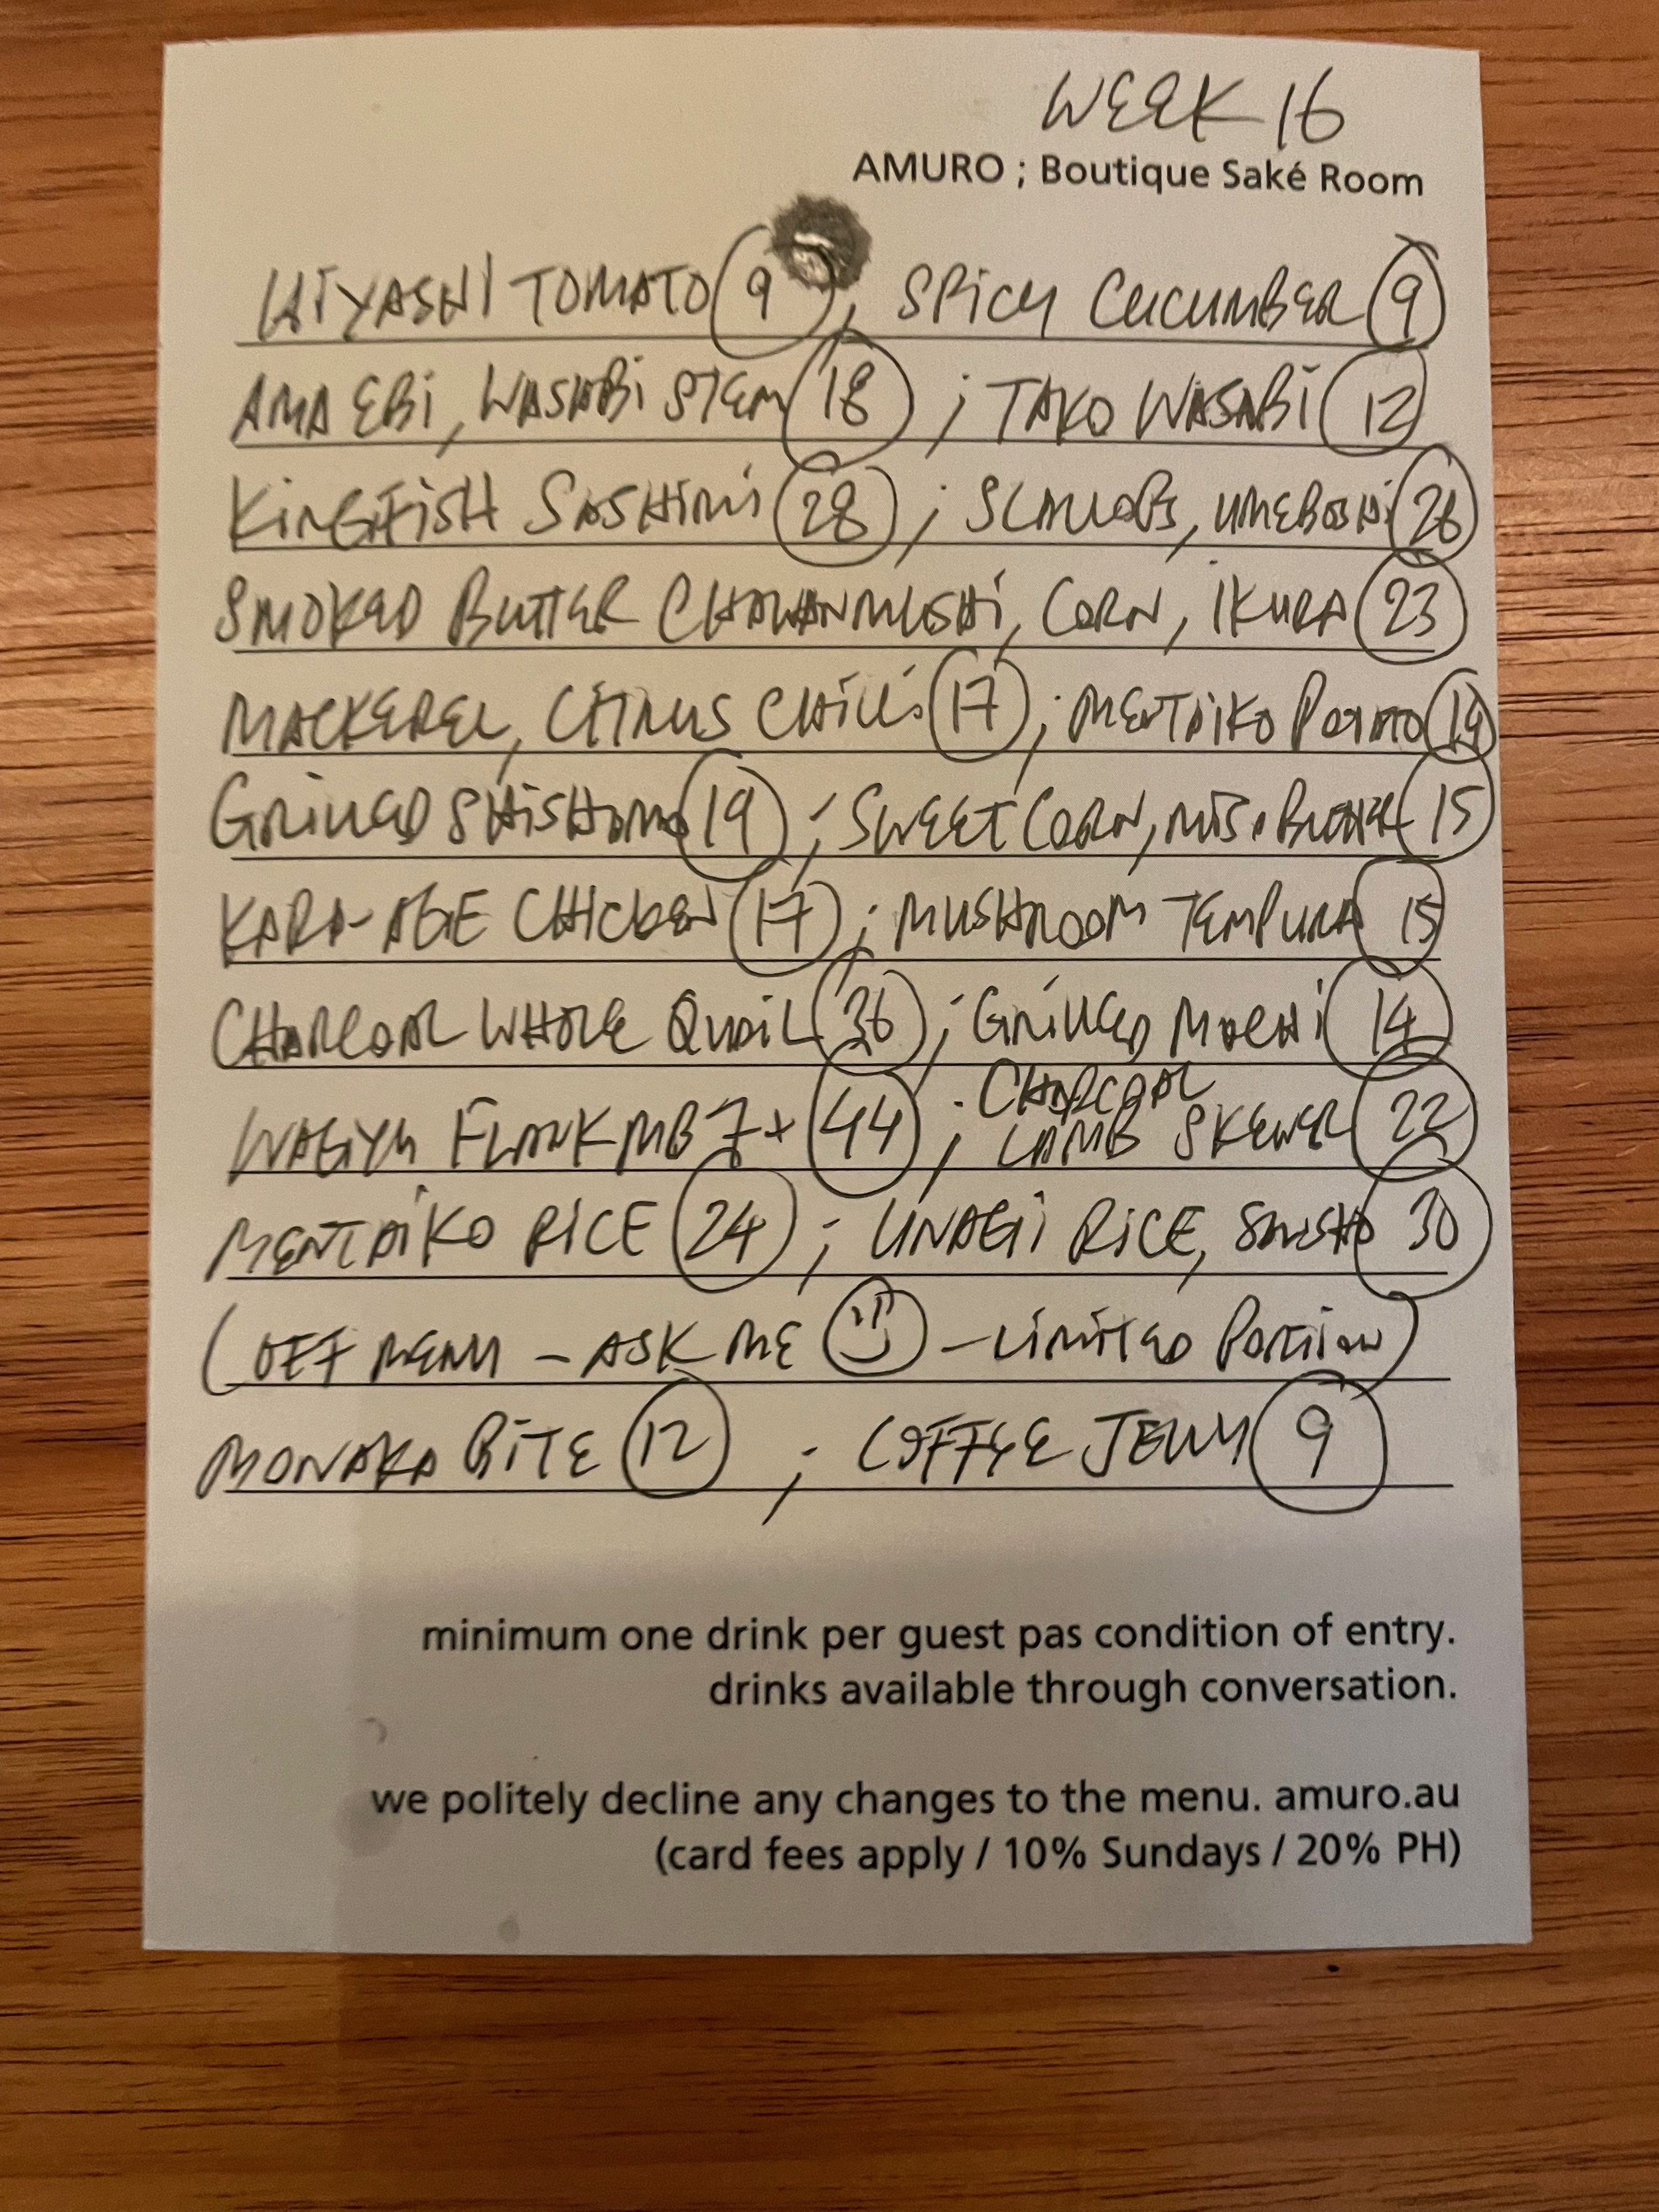 WEEK 16
AMURO ; Boutique Saké Room
HIYASHI TOMATO 9 ; SPICY CUCUMBER 9
AMA EBI, WASABI STEM 18 ; TAKO WASABI 12
KINGFISH SASHIMI 28 ; SCALLOPS, UMEBOSHI 26
SMOKED BUTTER CHAWANMUSHI, CORN, IKURA 23
MACKEREL, CITRUS CHILLI 17 ; MENTAIKO POTATO
GRILLED SHISHAMO 19 ; SWEET CORN, MISO BUTTER 15
KARA-AGE CHICKEN 17 ; MUSHROOM TEMPURA 15
CHARCOAL WHOLE QUAIL 36 ; GRILLED MOCHI 14
WAGYU FLANK MB7+ 44 ; CHARCOAL LAMB SKEWER 22
MENTAIKO RICE 24 ; UNAGI RICE, 30
(OFF MENU - ASK ME - LIMITED PORTION)
MONAKA BITE 12 ; COFFEE JELLY 9
minimum one drink per guest pas condition of entry.
drinks available through conversation.
we politely decline any changes to the menu. amuro.au
(card fees apply / 10% Sundays / 20% PH)